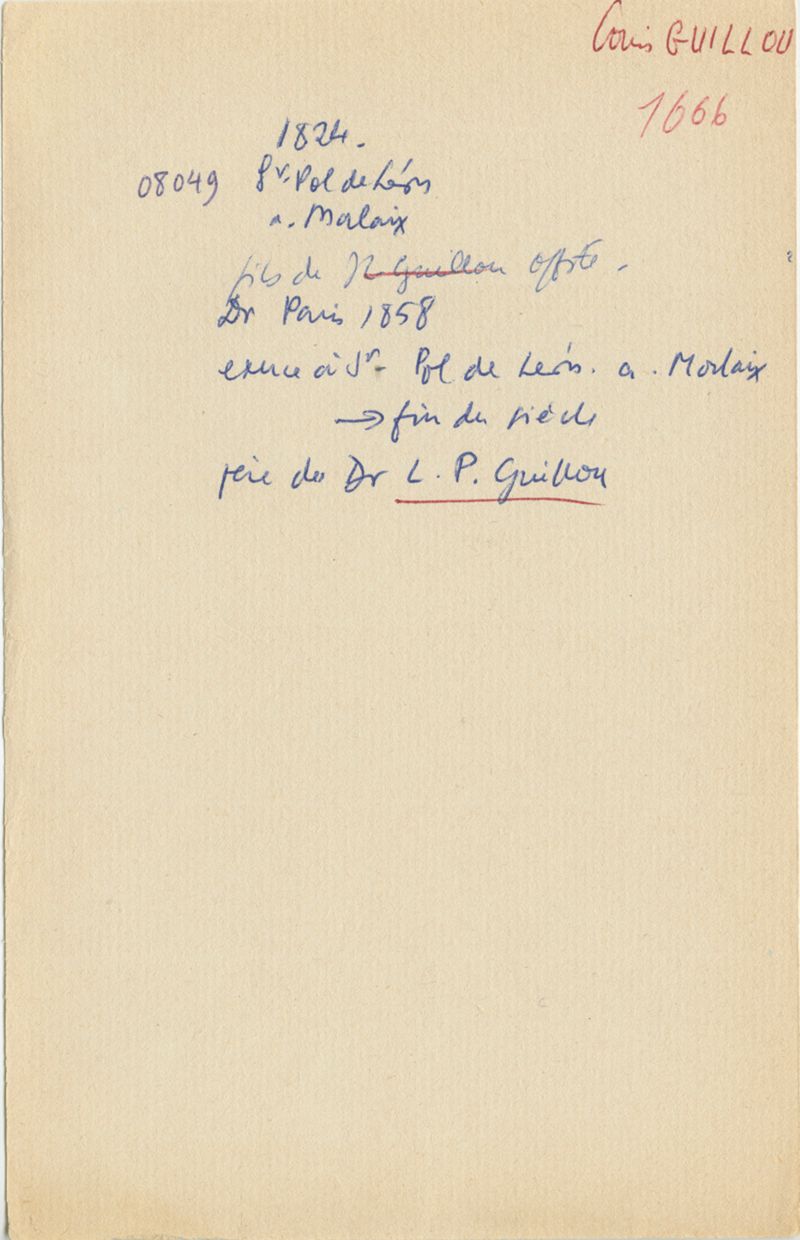 Louis GUILLOU
1666
1824.
08049 St. Pol de Léon
a. Morlaix
fils de Guillou offte.
Dr Paris 1858
exerce à St- Pol de Léon. a. Morlaix
→ fin du siècle
père du Dr L. P. Guillou